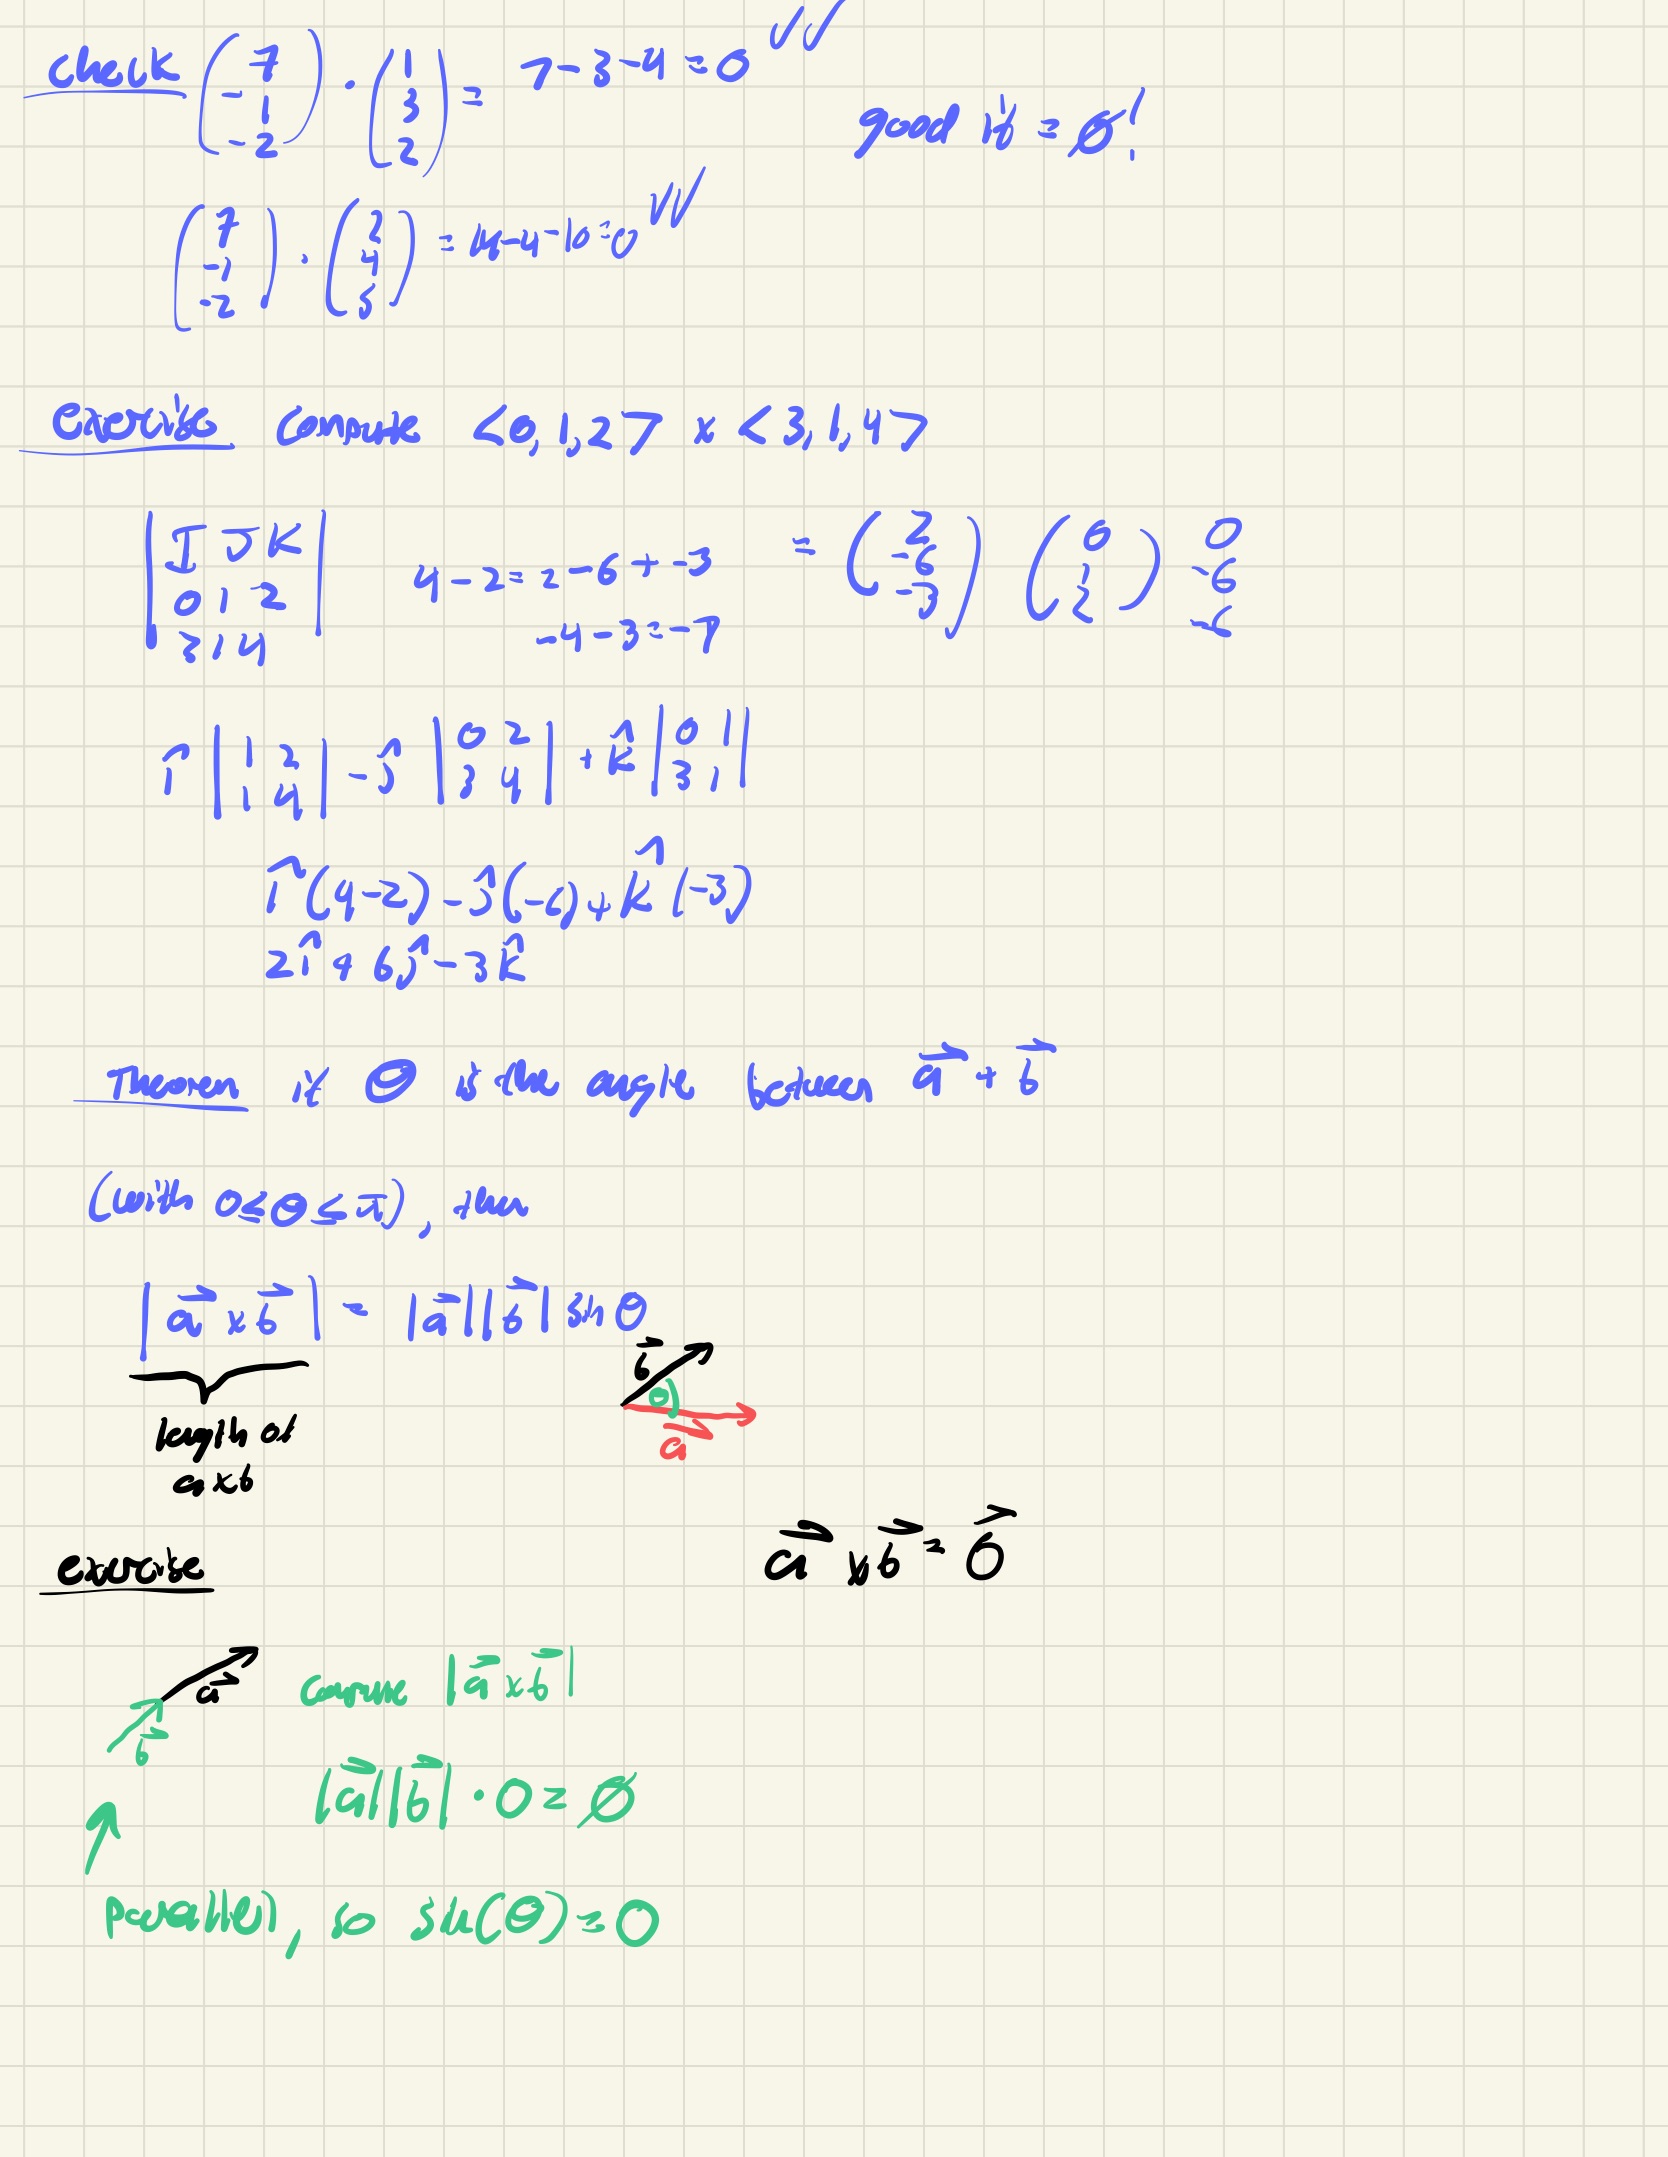 check (7 -1 -2) · (1 3 2) = 7-3-4=0 ✓✓
good if = 0!
(7 -1 -2) · (2 4 5) = 14-4-10=0 ✓✓
exercise compute <0,1,2> x <3,1,4>
|I J K|
|0 1 2|
|3 1 4|
4-2=2-6+-3
-4-3=-7
= (2 -6 -3) (0 1 2) 0 -6 -6
î |1 2| - ĵ |0 2| + k̂ |0 1|
|1 4| |3 4| |3 1|
î(4-2)-ĵ(-6)+k̂(-3)
2î+6ĵ-3k̂
Theorem if θ is the angle between a⃗ + b⃗
(with 0≤θ≤π), then
|a⃗ x b⃗| = |a⃗||b⃗| sin θ
b⃗
θ
a⃗
length of
a x b
exercise
a⃗ x b⃗ = 0⃗
a⃗
b⃗
compute |a⃗ x b⃗|
|a⃗||b⃗| · 0 = 0
parallel, so sin(θ)=0